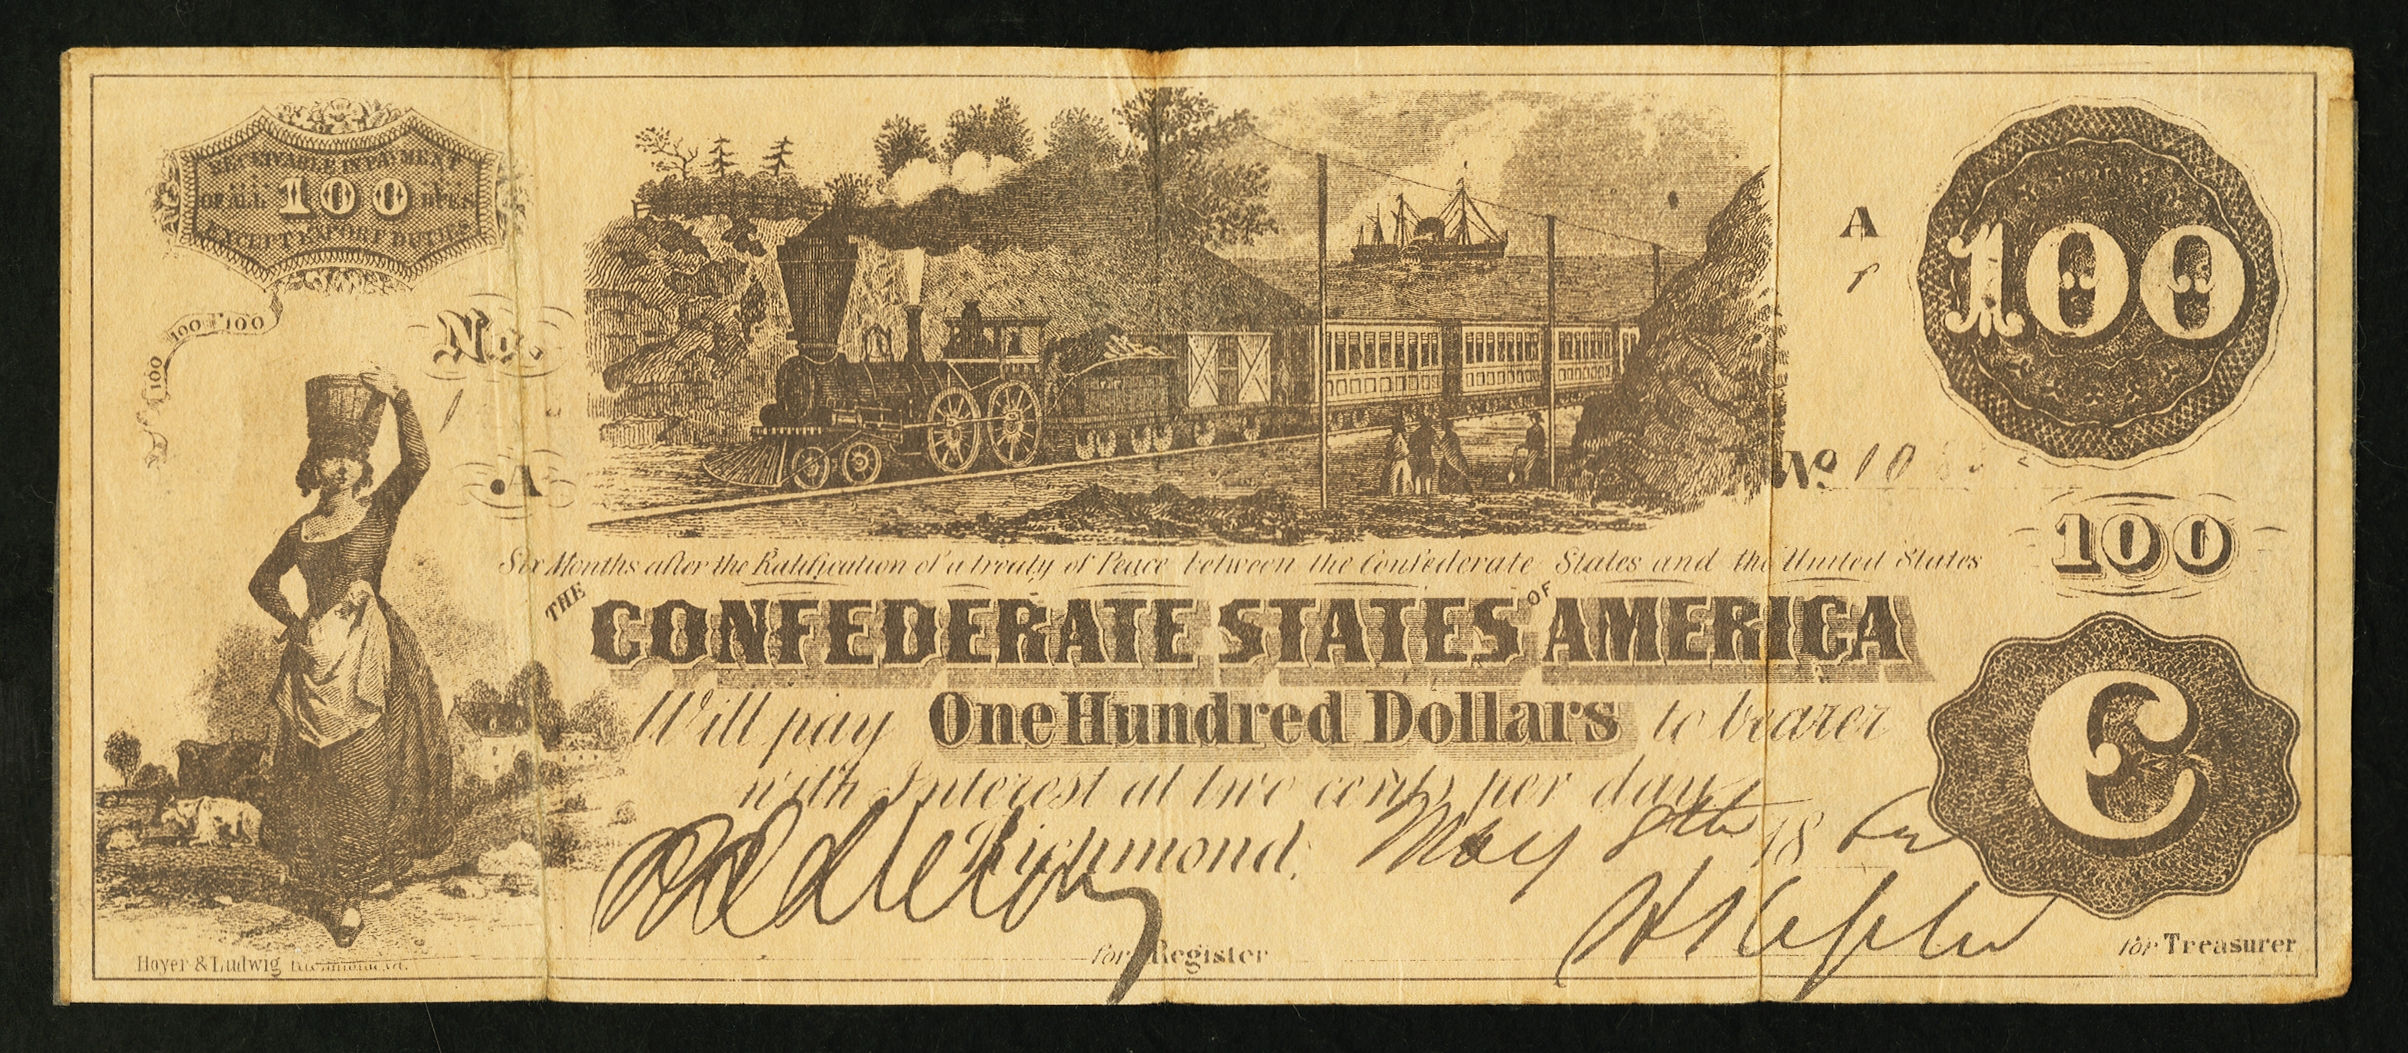 RECEIVABLE IN PAYMENT
OF ALL 100 DUES
EXCEPT EXPORT DUTIES
100 100 100
No.
1
A
A
1
100
No 10
100
Six Months after the Ratification of a treaty of Peace between the Confederate States and the United States
THE CONFEDERATE STATES OF AMERICA
Will pay One Hundred Dollars to bearer
with Interest at two cents per day
Richmond, May 8th 18
C
for Register
for Treasurer
Hoyer & Ludwig Richmond, Va.